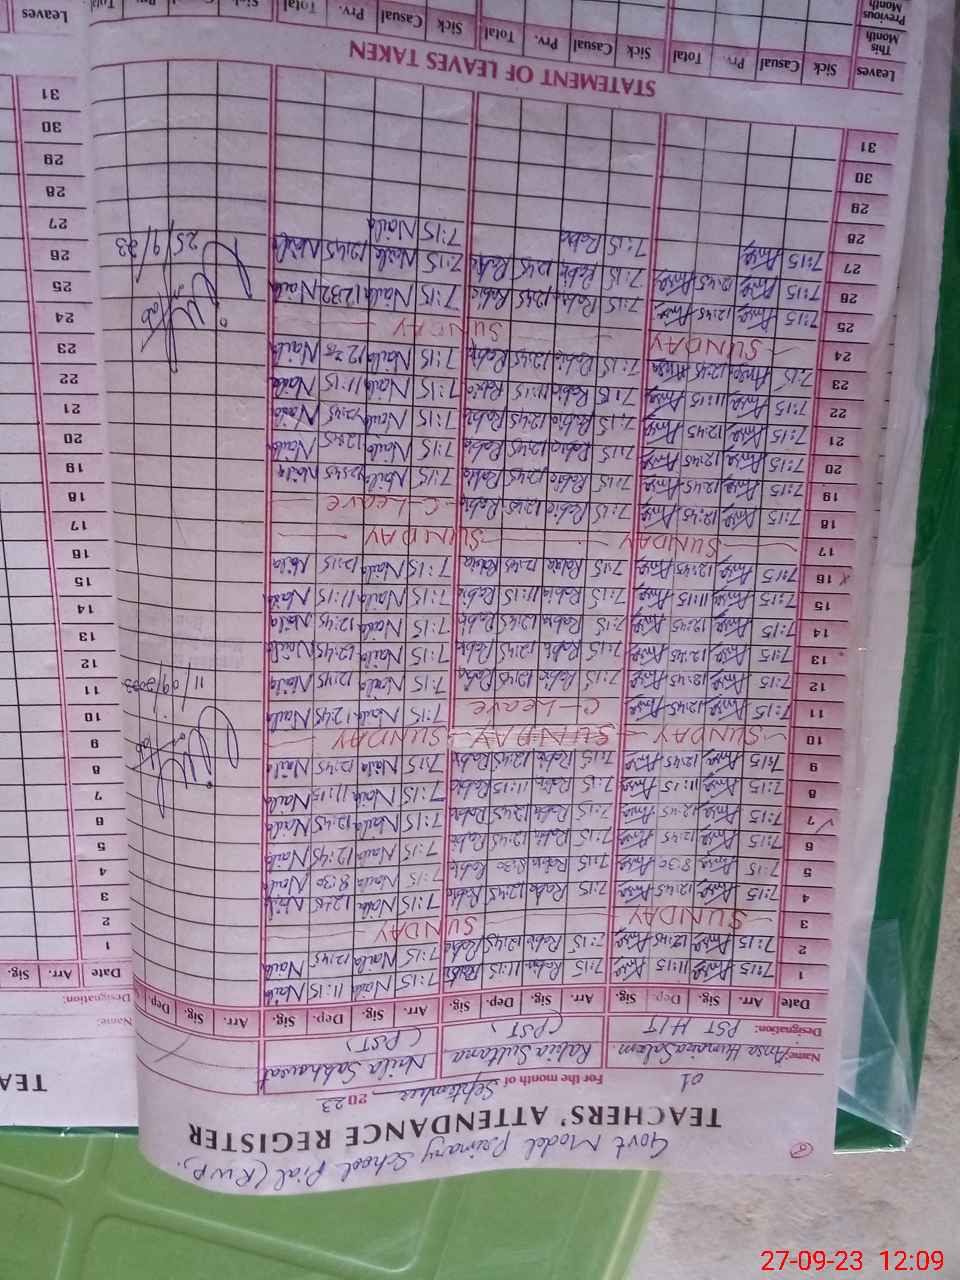 Govt Model Primary School Pial (R.W.P).
TEACHERS' ATTENDANCE REGISTER
01 For the month of September 2023
Name: Ansa Humaira Salem Rabia Sultana Naila Sakhawat
Designation: PST H/T (PST) (PST)
Date Arr. Sig. Dep. Sig. Arr. Sig. Dep. Sig. Arr. Sig. Dep. Sig. Arr. Sig. Dep.
1 7:15 Ansa 11:15 Ansa 7:15 Rabia 11:15 Rabia 7:15 Naila 11:15 Naila
2 7:15 Ansa 12:45 Ansa 7:15 Rabia 12:45 Rabia 7:15 Naila 12:45 Naila
3 — SUNDAY — SUNDAY
4 7:15 Ansa 12:45 Ansa 7:15 Rabia 12:45 Rabia 7:15 Naila Naila
5 7:15 Ansa 8:30 Ansa 7:15 Rabia 8:30 Rabia 7:15 Naila 8:30 Naila
6 7:15 Ansa 12:45 Ansa 7:15 Rabia 12:45 Rabia 7:15 Naila 12:45 Naila
7 7:15 Ansa 12:45 Ansa 7:15 Rabia 12:45 Rabia 7:15 Naila 12:45 Naila
8 7:15 Ansa 11:15 Ansa 7:15 Rabia 11:15 Rabia 7:15 Naila 11:15 Naila
9 7:15 Ansa 12:45 Ansa 7:15 Rabia 12:45 Rabia 7:15 Naila 12:45 Naila
10 — SUNDAY — SUNDAY — SUNDAY —
11 7:15 Ansa 12:45 Ansa C-Leave 7:15 Naila 12:45 Naila 11/09/2023
12 7:15 Ansa 12:45 Ansa 7:15 Rabia 12:45 Rabia 7:15 Naila 12:45 Naila
13 7:15 Ansa 12:45 Ansa 7:15 Rabia 12:45 Rabia 7:15 Naila 12:45 Naila
14 7:15 Ansa 12:45 Ansa 7:15 Rabia 12:45 Rabia 7:15 Naila 12:45 Naila
15 7:15 Ansa 11:15 Ansa 7:15 Rabia 11:15 Rabia 7:15 Naila 11:15 Naila
16 7:15 Ansa 12:45 Ansa 7:15 Rabia 12:45 Rabia 7:15 Naila 12:15 Naila
17 — SUNDAY — SUNDAY —
18 7:15 Ansa 12:45 Ansa 7:15 Rabia 12:45 Rabia — C-Leave —
19 7:15 Ansa 12:45 Ansa 7:15 Rabia 12:45 Rabia 7:15 Naila 12:45 Naila
20 7:15 Ansa 12:45 Ansa 7:15 Rabia 12:45 Rabia 7:15 Naila 12:45 Naila
21 7:15 Ansa 12:45 Ansa 7:15 Rabia 12:45 Rabia 7:15 Naila 12:45 Naila
22 7:15 Ansa 11:15 Ansa 7:15 Rabia 11:15 Rabia 7:15 Naila 11:15 Naila
23 7:15 Ansa 12:45 Ansa 7:15 Rabia 12:45 Rabia 7:15 Naila Naila
24 — SUNDAY — SUNDAY —
25 7:15 Ansa 12:45 Ansa 7:15 Rabia 12:45 Rabia 7:15 Naila 12:32 Naila
26 7:15 Ansa 12:45 Ansa 7:15 Rabia 12:45 Rabia 7:15 Naila 12:45 Naila 25/9/23
27 7:15 Ansa 7:15 Rabia 7:15 Naila
28
29
30
31
STATEMENT OF LEAVES TAKEN
Leaves Sick Casual Prv. Total Sick Casual Prv. Total Sick Casual Prv. Total Sick
This Month
Previous Month
TEA
Name:
Designation:
Date Arr. Sig.
1
2
3
4
5
6
7
8
9
10
11
12
13
14
15
16
17
18
19
20
21
22
23
24
25
26
27
28
29
30
31
Leaves
27-09-23 12:09